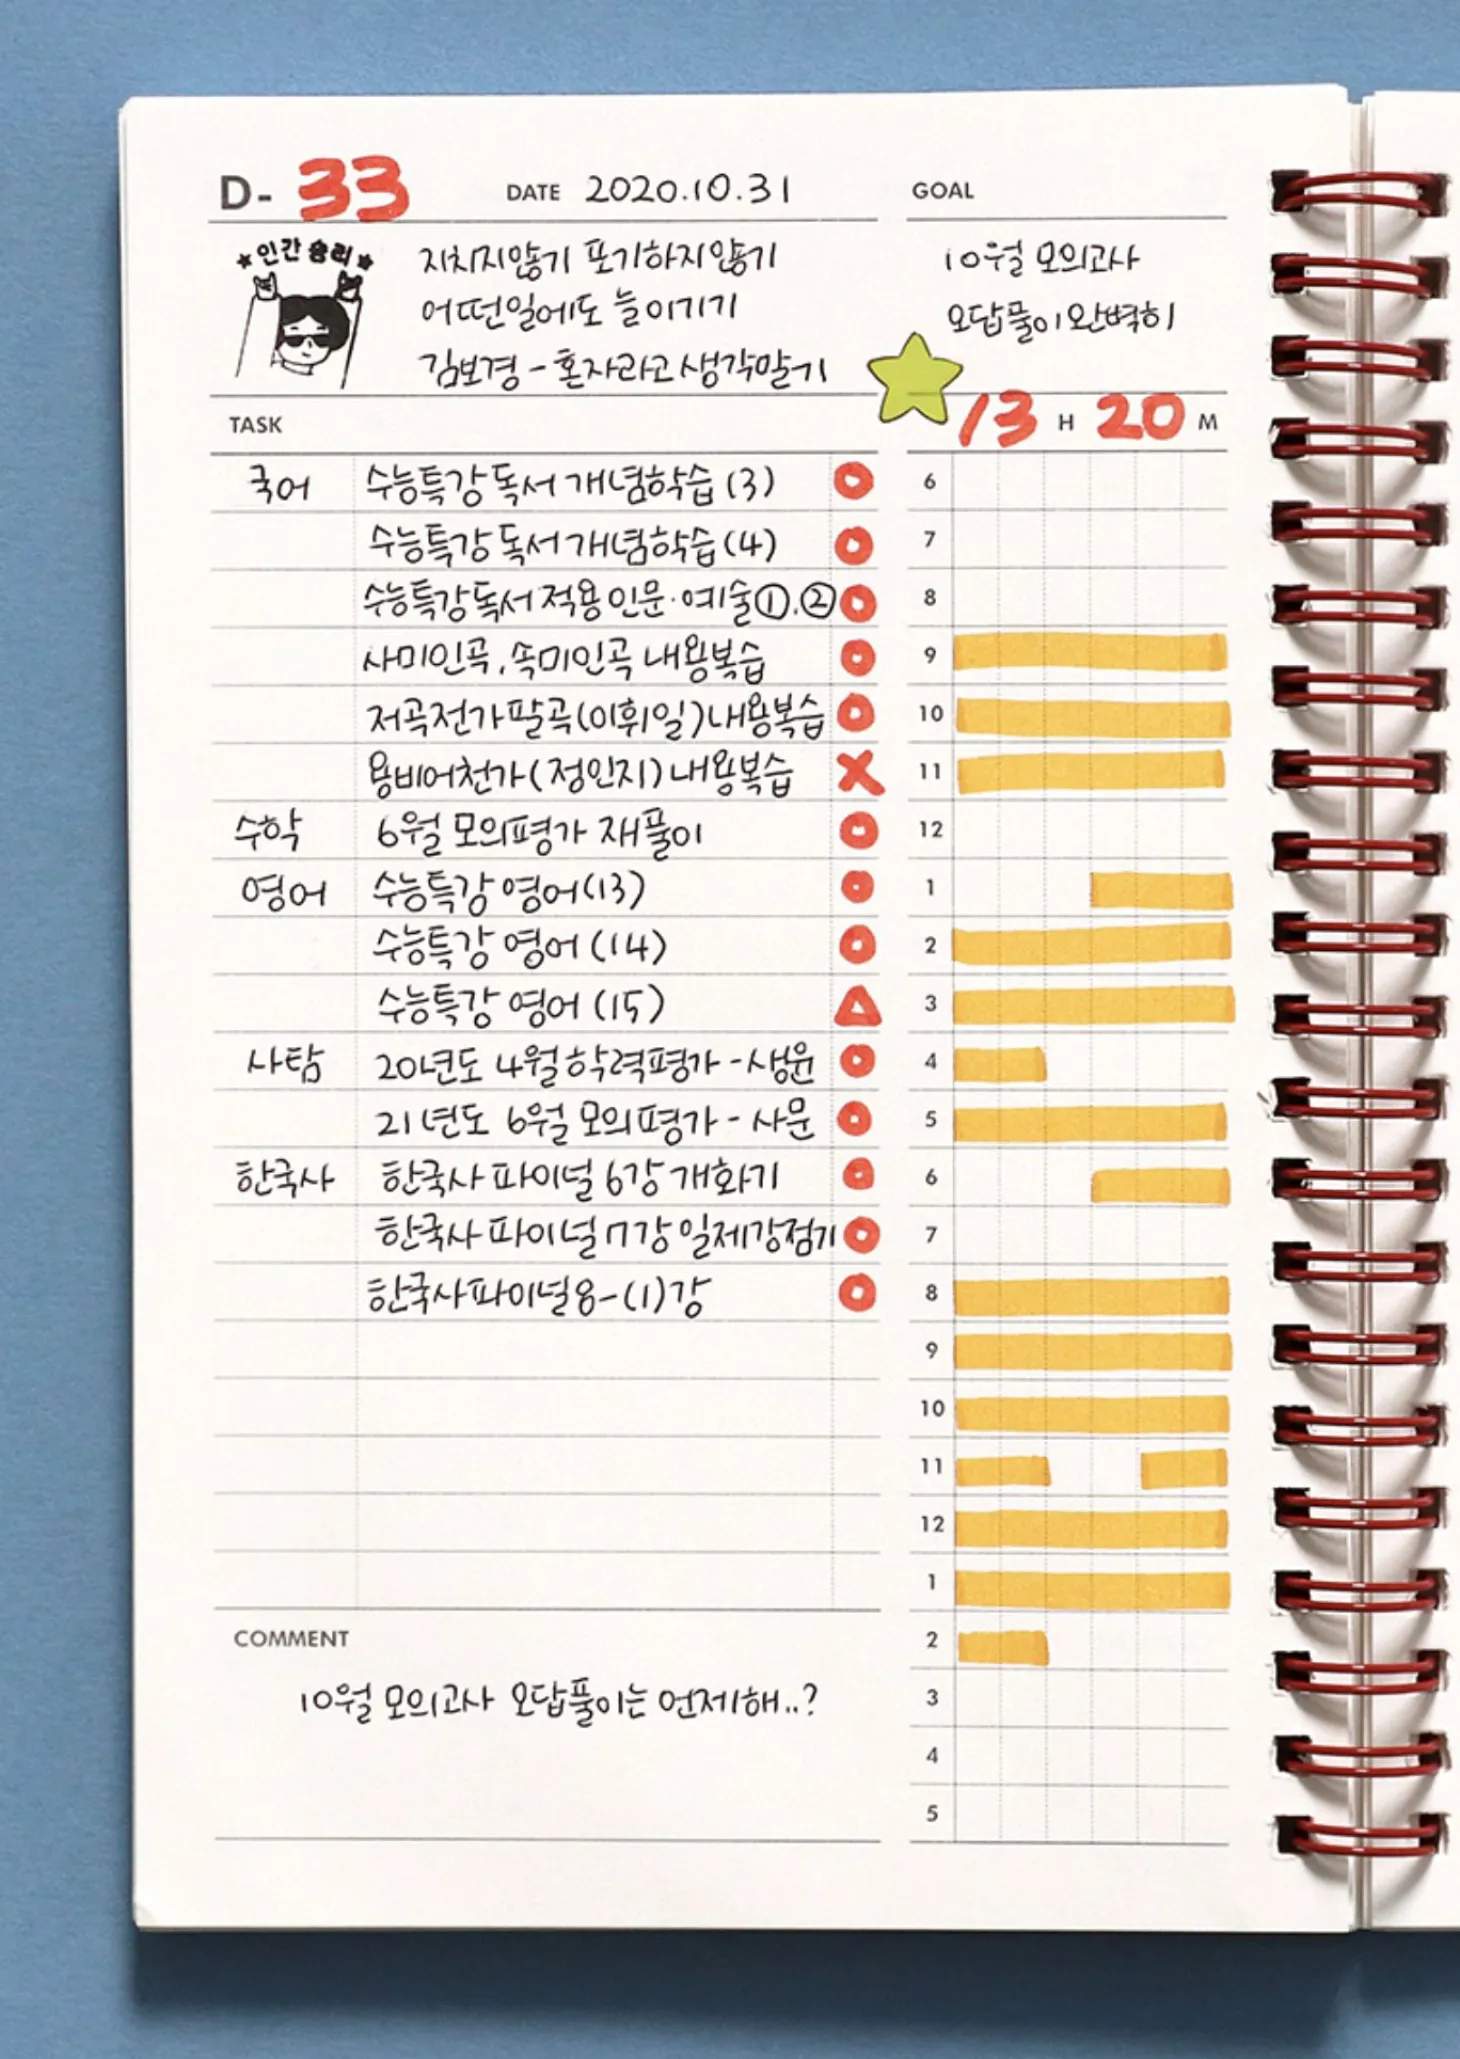 D- 33 DATE 2020.10.31 GOAL
인간 승리
지치지않기 포기하지않기
어떤일에도 늘 이기기
김보경 - 혼자라고 생각말기
10월 모의고사
오답풀이 완벽히
TASK
13 H 20 M
국어 수능특강 독서 개념학습 (3)
수능특강 독서 개념학습 (4)
수능특강 독서 적용 인문·예술 ①.②
사미인곡, 속미인곡 내용복습
저곡전가팔곡(이휘일) 내용복습
용비어천가 (정인지) 내용복습
수학 6월 모의평가 재풀이
영어 수능특강 영어 (13)
수능특강 영어 (14)
수능특강 영어 (15)
사탐 20년도 4월 학력평가 - 생윤
21년도 6월 모의평가 - 사문
한국사 한국사 파이널 6강 개화기
한국사 파이널 7강 일제강점기
한국사 파이널 8-(1)강
6
7
8
9
10
11
12
1
2
3
4
5
6
7
8
9
10
11
12
1
2
3
4
5
COMMENT
10월 모의고사 오답풀이는 언제해..?